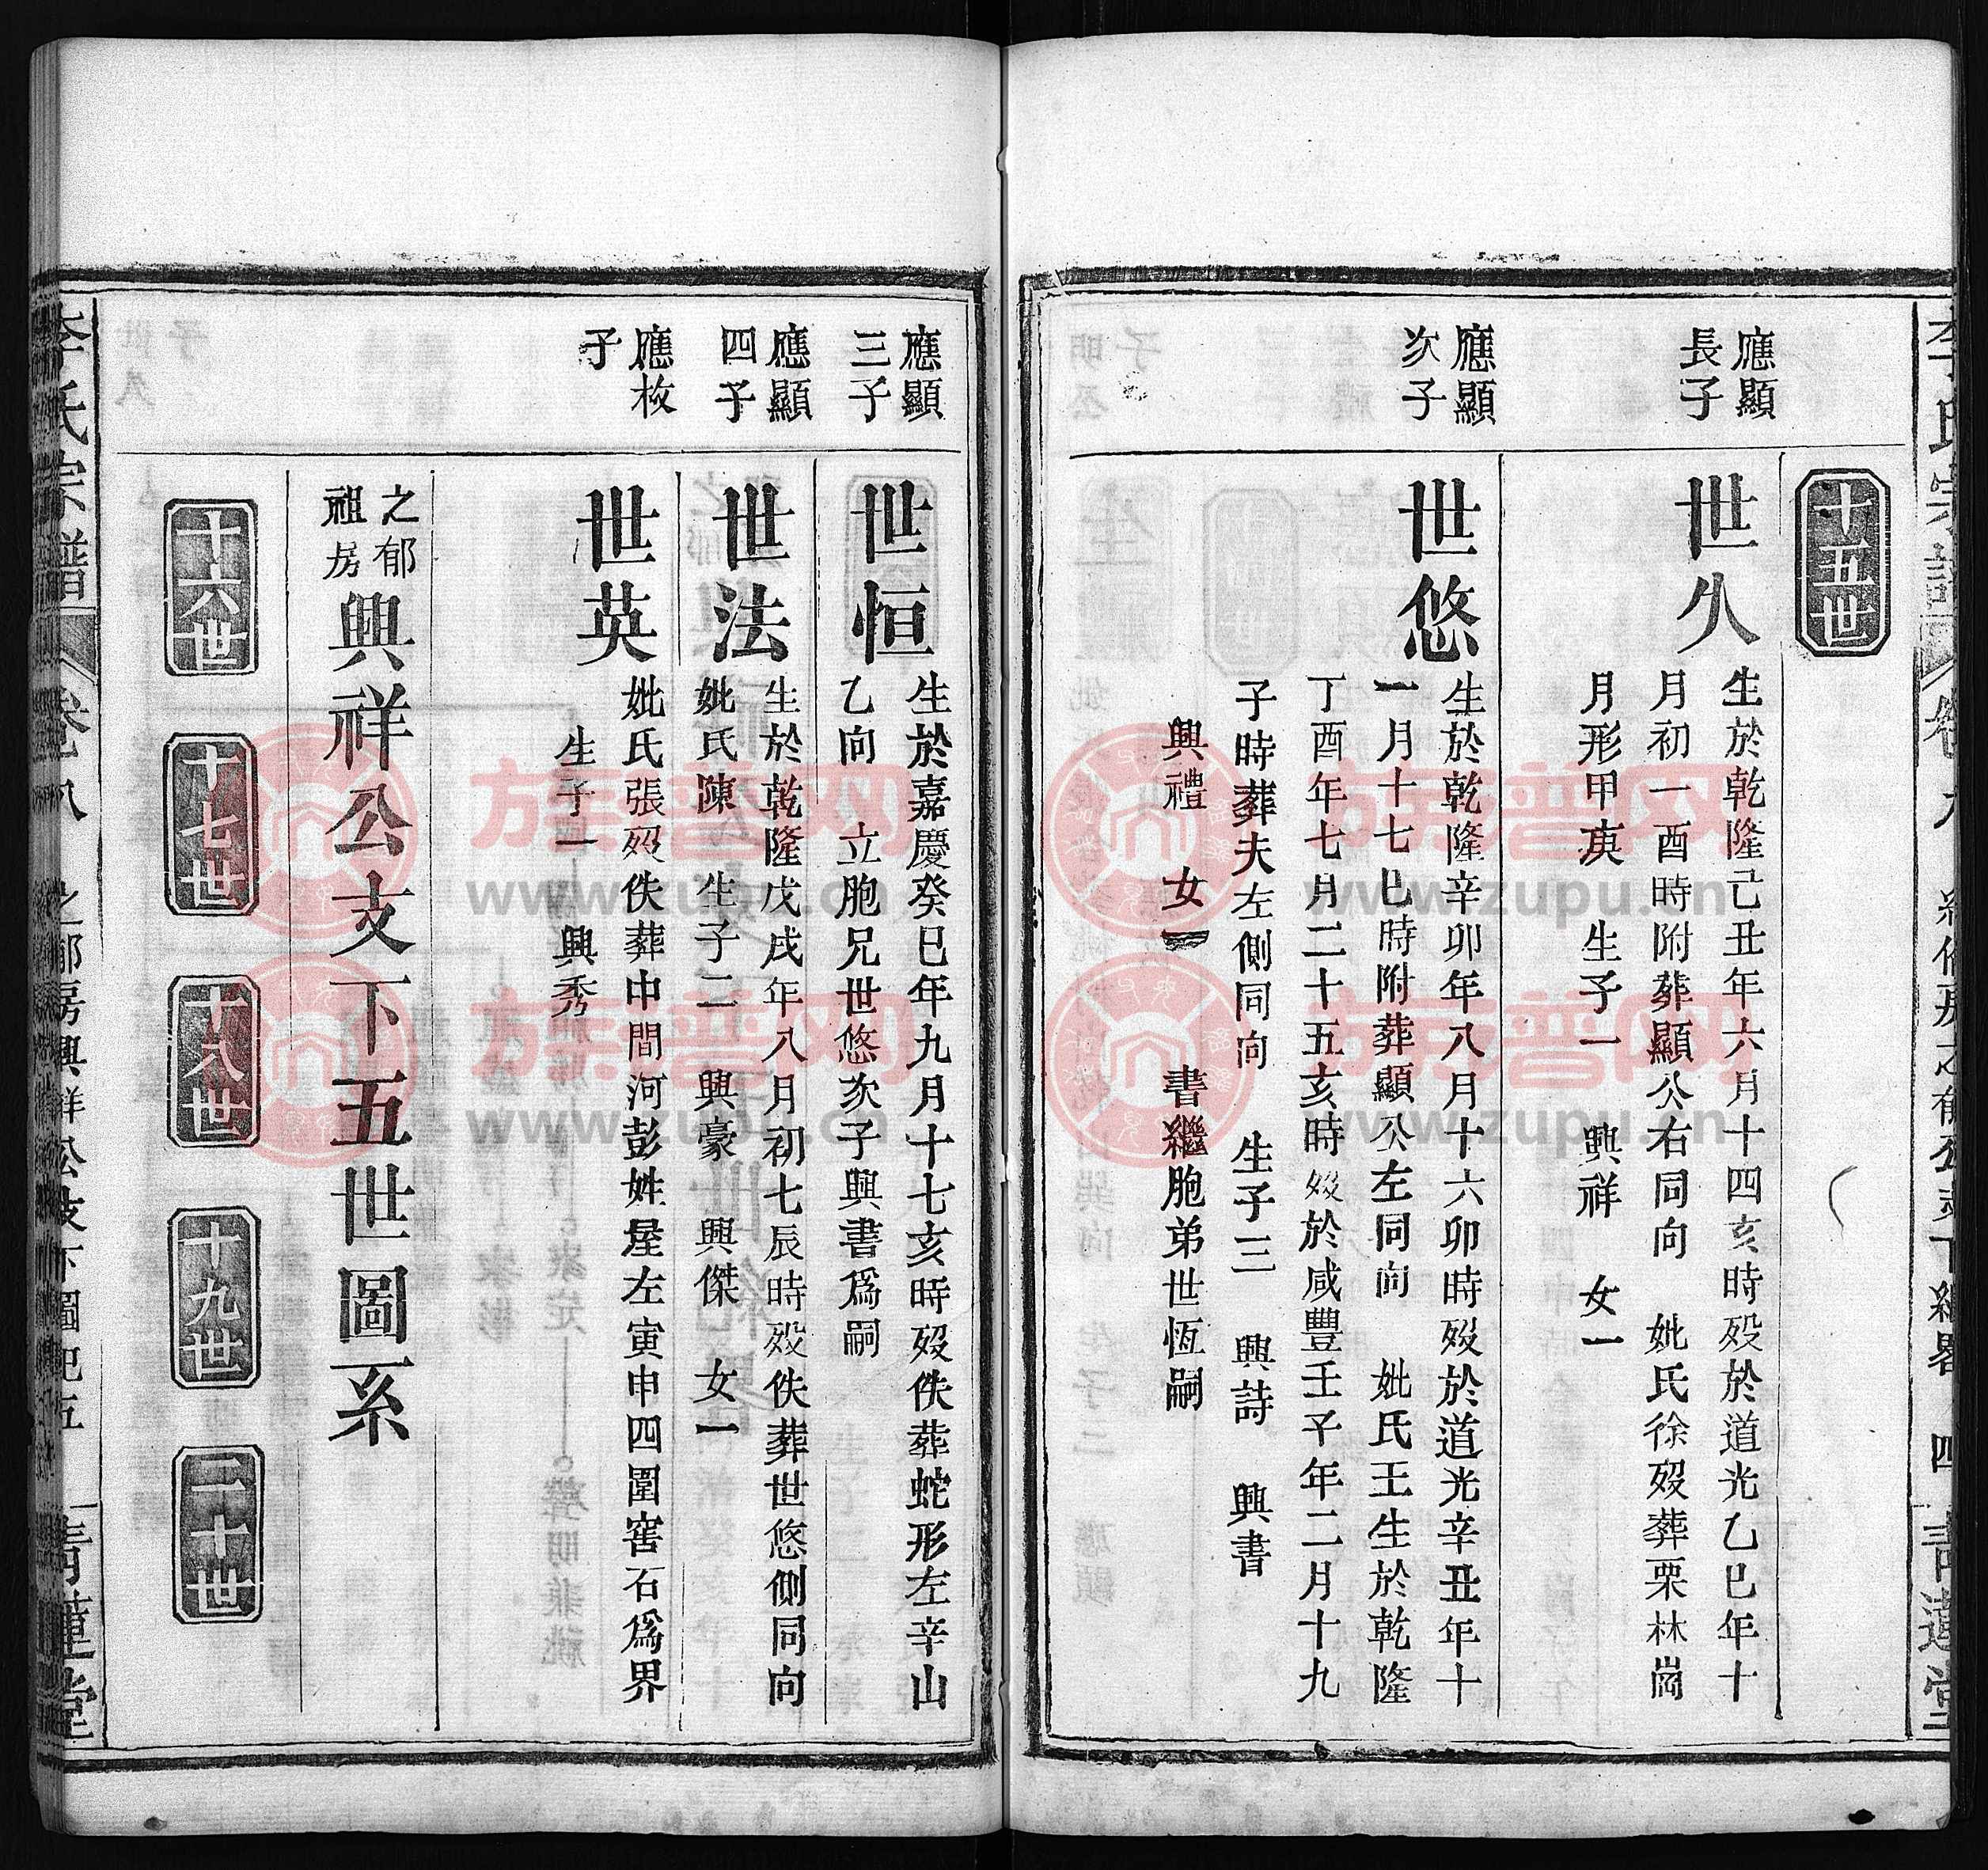 十五世
應顯
長子
世久
生於乾隆己丑年六月十四亥時歿於道光乙巳年十
月初一酉時附葬顯公右同向　妣氏徐歿葬栗林崗
月形甲庚　生子一　興祥　女一
應顯
次子
世悠
生於乾隆辛卯年八月十六卯時歿於道光辛丑年十
一月十七巳時附葬顯公左同向　妣氏王生於乾隆
丁酉年七月二十五亥時歿於咸豐壬子年二月十九
子時葬夫左側同向　生子三　興詩　興書
興禮　女一　書繼胞弟世恆嗣
應顯
三子
世恒
生於嘉慶癸巳年九月十七亥時歿佚葬蛇形左辛山
乙向　立胞兄世悠次子興書為嗣
應顯
四子
世法
生於乾隆戊戌年八月初七辰時歿佚葬世悠側同向
妣氏陳　生子二　興豪　興傑　女一
應枚
子
世英
妣氏張歿佚葬中間河彭姓屋左寅申四圍窖石為界
生子一　興秀
之郁
祖房
興祥公支下五世圖系
十六世
十七世
十八世
十九世
二十世
李氏宗譜
卷八
之郁房興祥公支下圖
五
青蓮堂
族譜网
www.zupu.cn
族譜网
www.zupu.cn
族譜网
www.zupu.cn
族譜网
www.zupu.cn